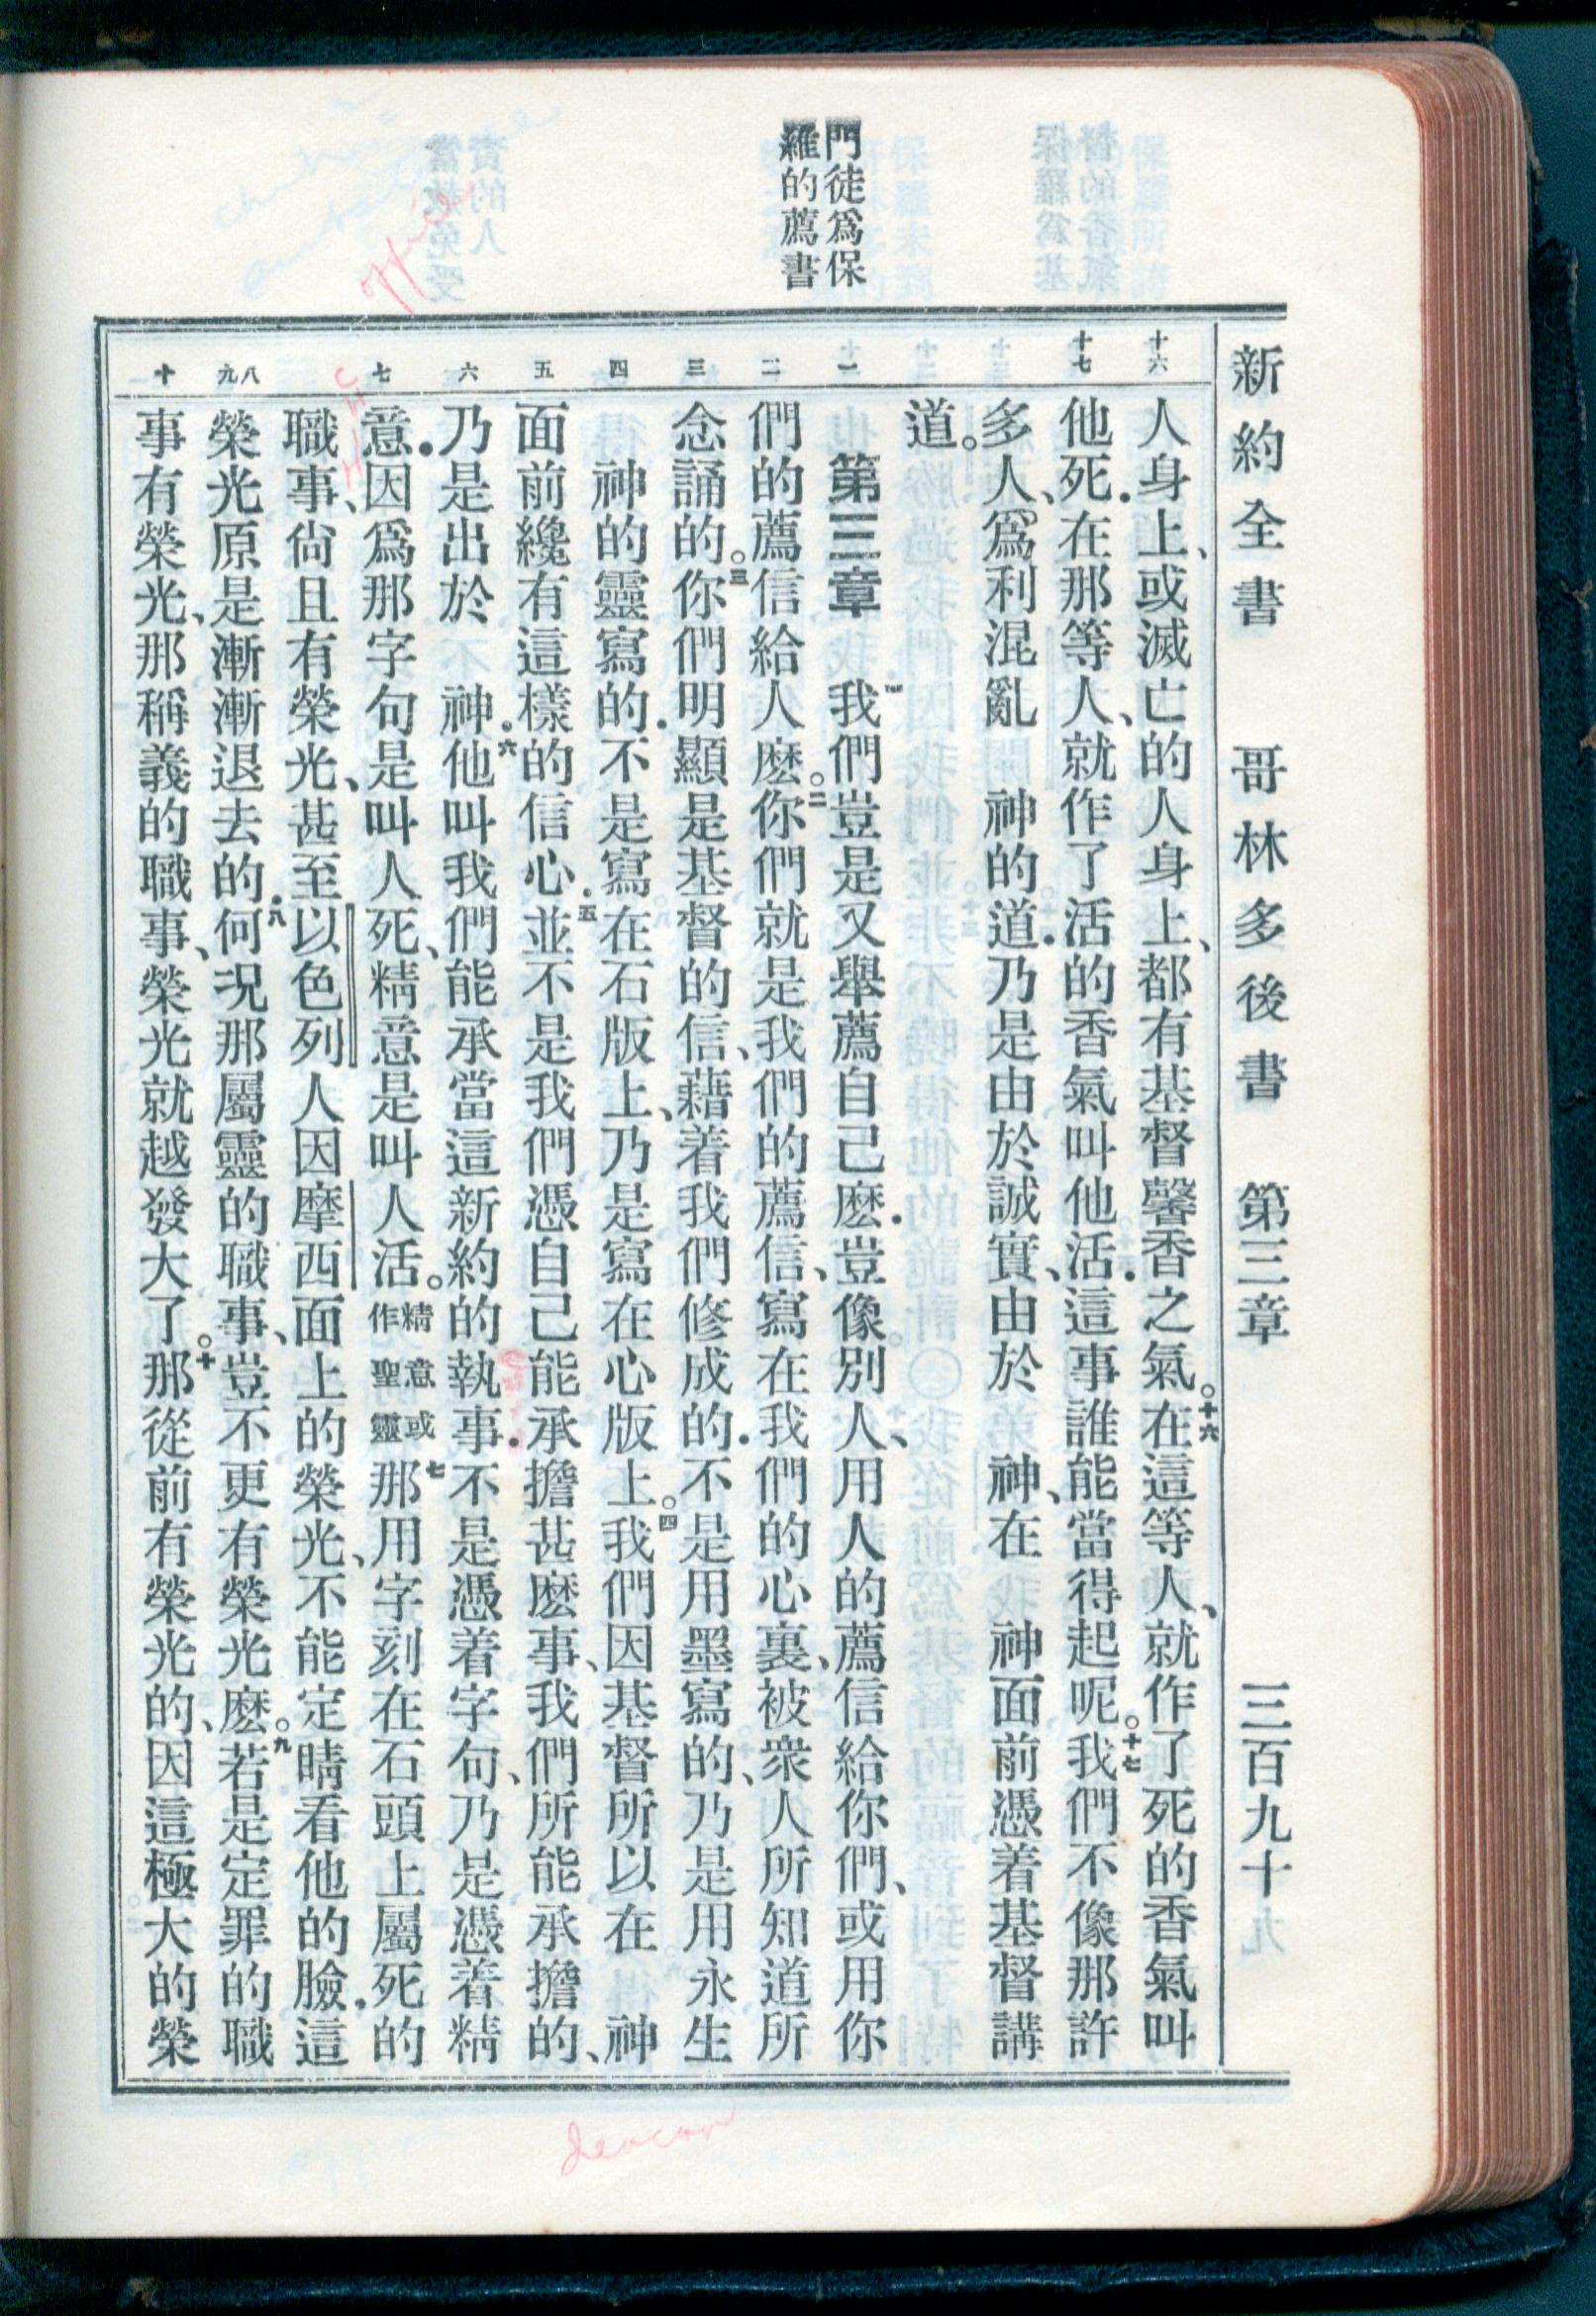 新約全書 哥林多後書 第三章 三百九十九
門徒爲保
羅的薦書
十六
人身上、或滅亡的人身上、都有基督馨香之氣。十六在這等人、就作了死的香氣叫
十七
他死．在那等人、就作了活的香氣叫他活．這事誰能當得起呢。十七我們不像那許
多人、爲利混亂 神的道．乃是由於誠實、由於 神、在 神面前憑着基督講
道。
一
第三章 一我們豈是又舉薦自己麼．豈像別人、用人的薦信給你們、或用你
二
們的薦信給人麼。二你們就是我們的薦信、寫在我們的心裏、被衆人所知道所
三
念誦的。三你們明顯是基督的信、藉着我們修成的．不是用墨寫的、乃是用永生
四
神的靈寫的．不是寫在石版上、乃是寫在心版上。四我們因基督所以在 神
五
面前纔有這樣的信心．五並不是我們憑自己能承擔甚麼事、我們所能承擔的、
六
乃是出於 神．六他叫我們能承當這新約的執事．不是憑着字句、乃是憑着精
七
意．因爲那字句是叫人死、精意是叫人活。精意或作聖靈七那用字刻在石頭上屬死的
職事、尙且有榮光、甚至以色列人因摩西面上的榮光、不能定睛看他的臉．這
八九
榮光原是漸漸退去的．八何况那屬靈的職事、豈不更有榮光麼。九若是定罪的職
十
事有榮光、那稱義的職事、榮光就越發大了。十那從前有榮光的、因這極大的榮
office
deacon